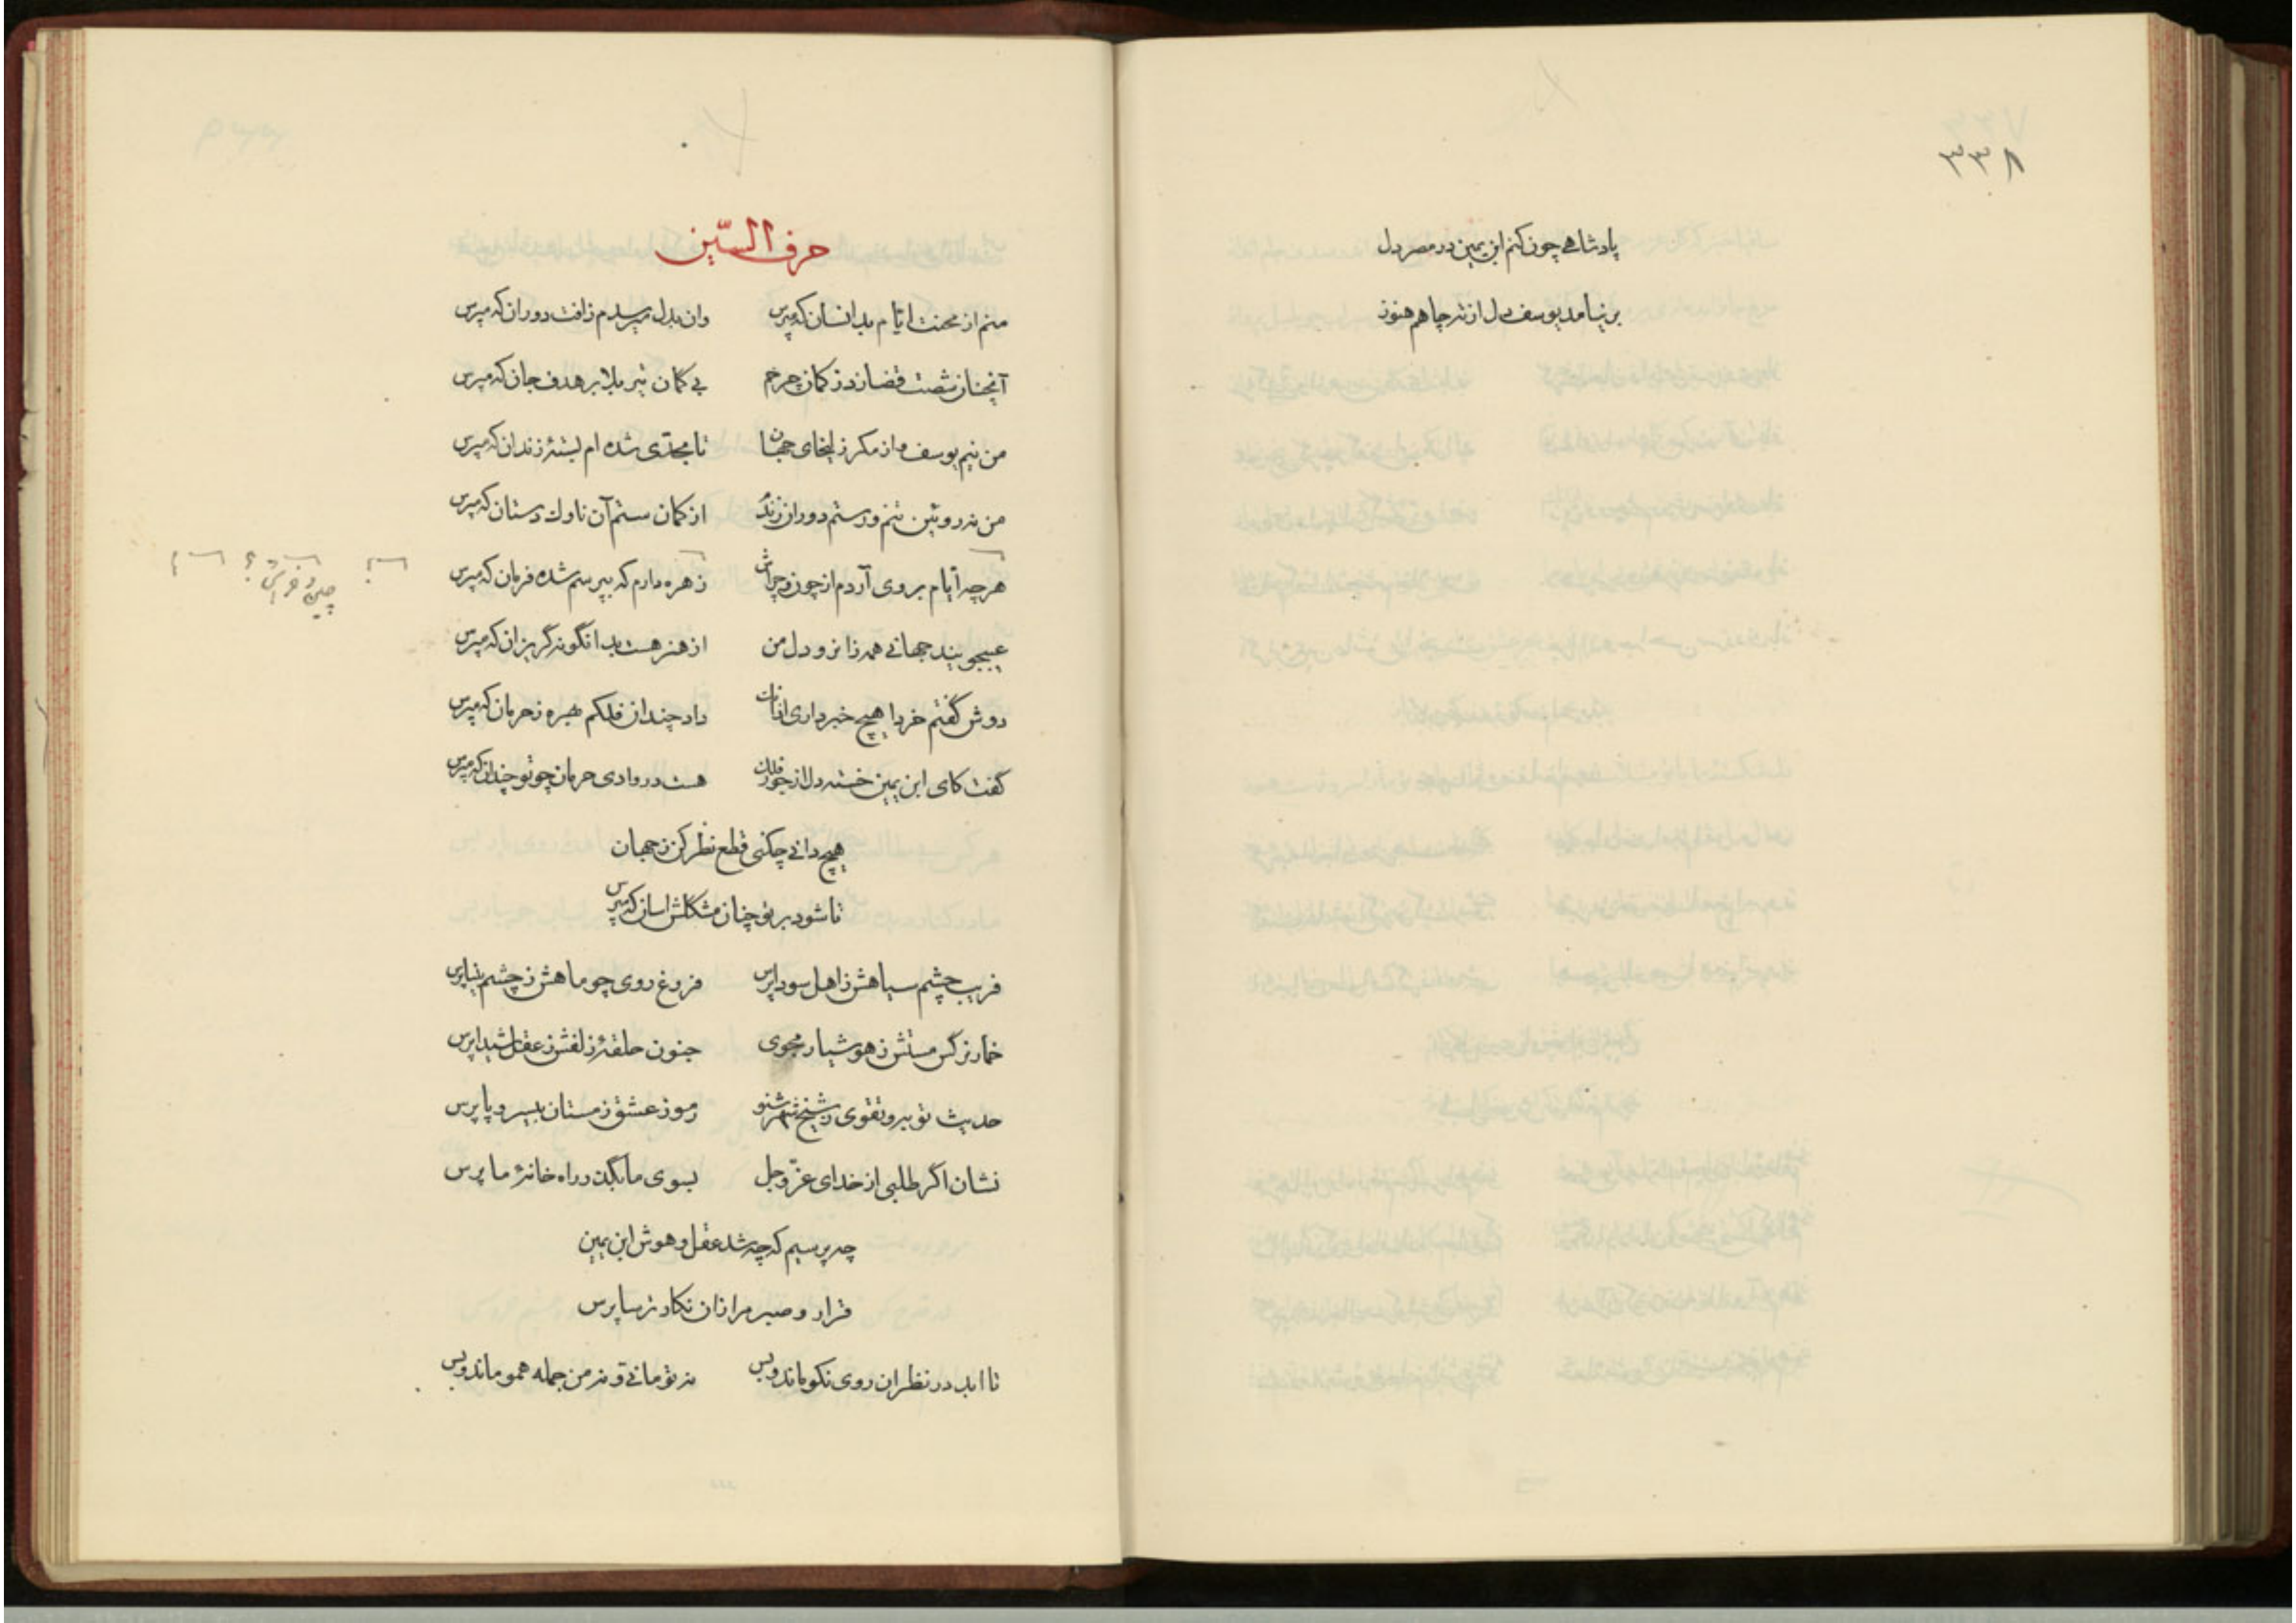 ۳۳۸
پادشاهی چون کنم ابن یمین در مصر دل
بر نیامد یوسف دل از ته چاهم هنوز
حرف السّین
منم از محنت ایّام بدانسان که مپرس وان بدل میرسدم زافت دوران که مپرس
آنچنان شصت قضا زد ز کمان چرخم بی کمان تیر بلا بر هدف جان که مپرس
من نیم یوسف و از مکر زلیخای جهان تا بحدّی شده ام بستهٔ زندان که مپرس
من نه روئین تنم و رستم دوران زندم از کمان ستم آن ناوک دستان که مپرس
هر چه ایّام بروی آردم از چون و چراش زهره دارم که بپرسم شده فرمان که مپرس
چین و خراش؟
عیبجویند جهانی همه زانرو دل من از هنر هست بدانگونه گریزان که مپرس
دوش گفتم خردا هیچ خبر داری از آنک داد چندان فلکم بهره ز حرمان که مپرس
گفت کای ابن یمین خسته دل از جور فلک هست در وادی حرمان چو تو چندان که مپرس
هیچ دانی چکنی قطع نظر کن ز جهان
تا شود بر تو چنان مشکلش اسان که مپرس
فریب چشم سیاهش ز اهل سودا پرس فروغ روی چو ماهش ز چشم بینا پرس
خمار نرگس مستش ز هوشیار مجوی جنون حلقهٔ زلفش ز عقل شیدا پرس
حدیث توبه و تقوی ز شیخ شهر شنو رموز عشق ز مستان بیسر و پا پرس
نشان اگر طلبی از خدای عزّ و جل بسوی ما بگذر راه خانهٔ ما پرس
چه پرسیم که چه شد عقل و هوش ابن یمین
قرار و صبر مرا زان نگار ترسا پرس
تا ابد در نظر ان روی نکو ماند و بس نه تو مانی و نه من جمله همو ماند و بس